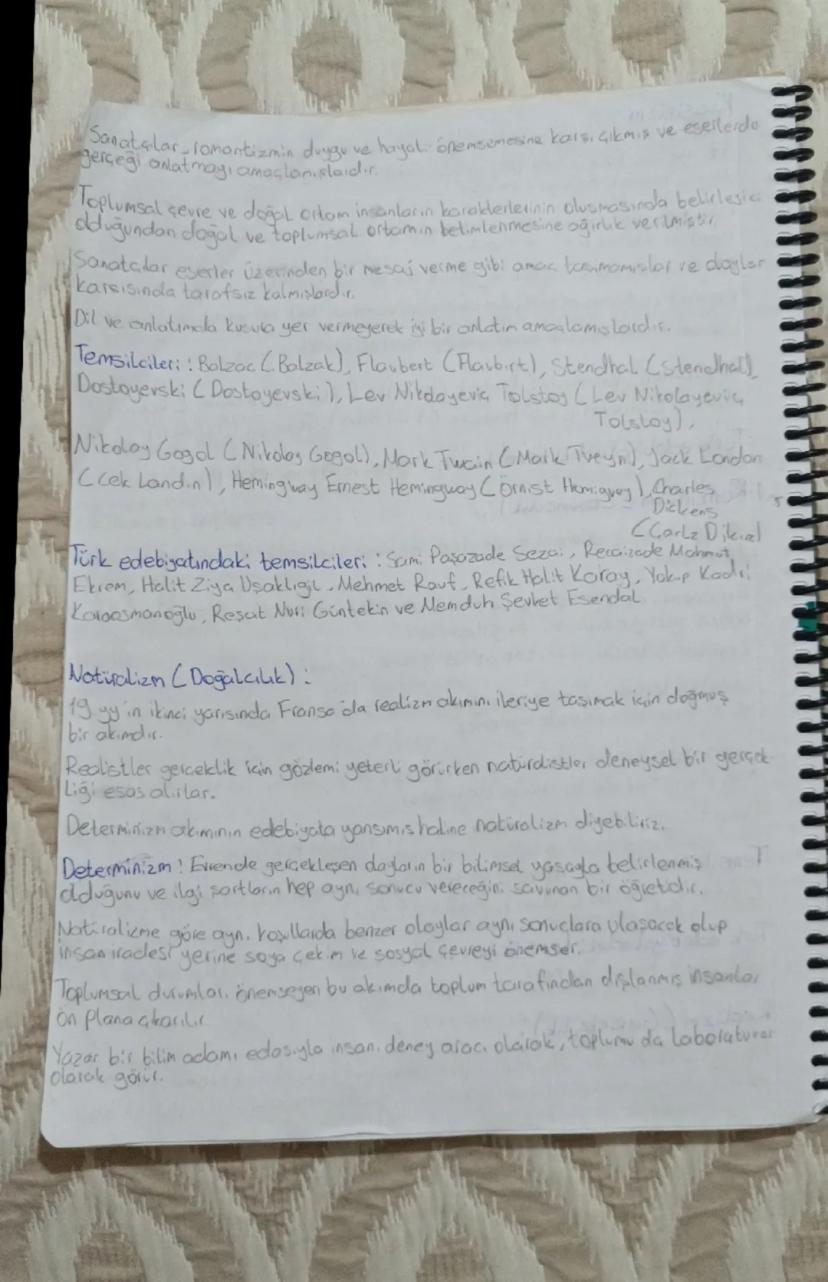 Sanatçılar, romantizmin duygu ve hayali önemsemesine karşı çıkmış ve eserlerde
gerçeği anlatmayı amaçlamışlardır.
Toplumsal çevre ve doğal ortam insanların karakterlerinin oluşmasında belirleyici
olduğundan doğal ve toplumsal ortamın betimlenmesine ağırlık verilmiştir.
Sanatçılar eserler üzerinden bir mesaj verme gibi amaç taşımamışlar ve olaylar
karşısında tarafsız kalmışlardır.
Dil ve anlatımda kusura yer vermeyerek iyi bir anlatım amaçlamışlardır.
Temsilcileri: Balzac (Balzak), Flaubert (Flaubirt), Stendhal (Stendhall),
Dostoyevski (Dostoyevski), Lev Nikolayeviç Tolstoy (Lev Nikolayeviç
Tolstoy),
Nikolay Gogol (Nikolay Gogol), Mark Twain (Mark Tveyn), Jack London
(Cek Landın), Hemingway Ernest Hemingway (Örnist Hemigvey), Charles
Dickens
(Çarlz Dikınz)
Türk edebiyatındaki temsilcileri: Sami Paşazade Sezai, Recaizade Mahmut
Ekrem, Halit Ziya Uşaklıgil, Mehmet Rauf, Refik Halit Karay, Yakup Kadri
Karaosmanoğlu, Reşat Nuri Güntekin ve Memduh Şevket Esendal
Natüralizm (Doğalcılık):
19 yy'in ikinci yarısında Fransa'da realizm akımını ileriye taşımak için doğmuş
bir akımdır.
Realistler gerçeklik için gözlemi yeterli görürken natüralistler deneysel bir gerçek
liği esas alırlar.
Determinizm akımının edebiyata yansımış haline natüralizm diyebiliriz.
Determinizm: Evrende gerçekleşen olayların bir bilimsel yasayla belirlenmiş
olduğunu ve ilgi şartların hep aynı sonucu vereceğini savunan bir öğretidir.
Natüralizme göre aynı koşullarda benzer olaylar aynı sonuçlara ulaşacak olup
insan iradesi yerine soya çekim ve sosyal çevreyi önemser.
Toplumsal durumları önemseyen bu akımda toplum tarafından dışlanmış insanlar
ön plana çıkarılır
Yazar bir bilim adamı edasıyla insanı deney aracı olarak, toplumu da laboratuvar
olarak görür.